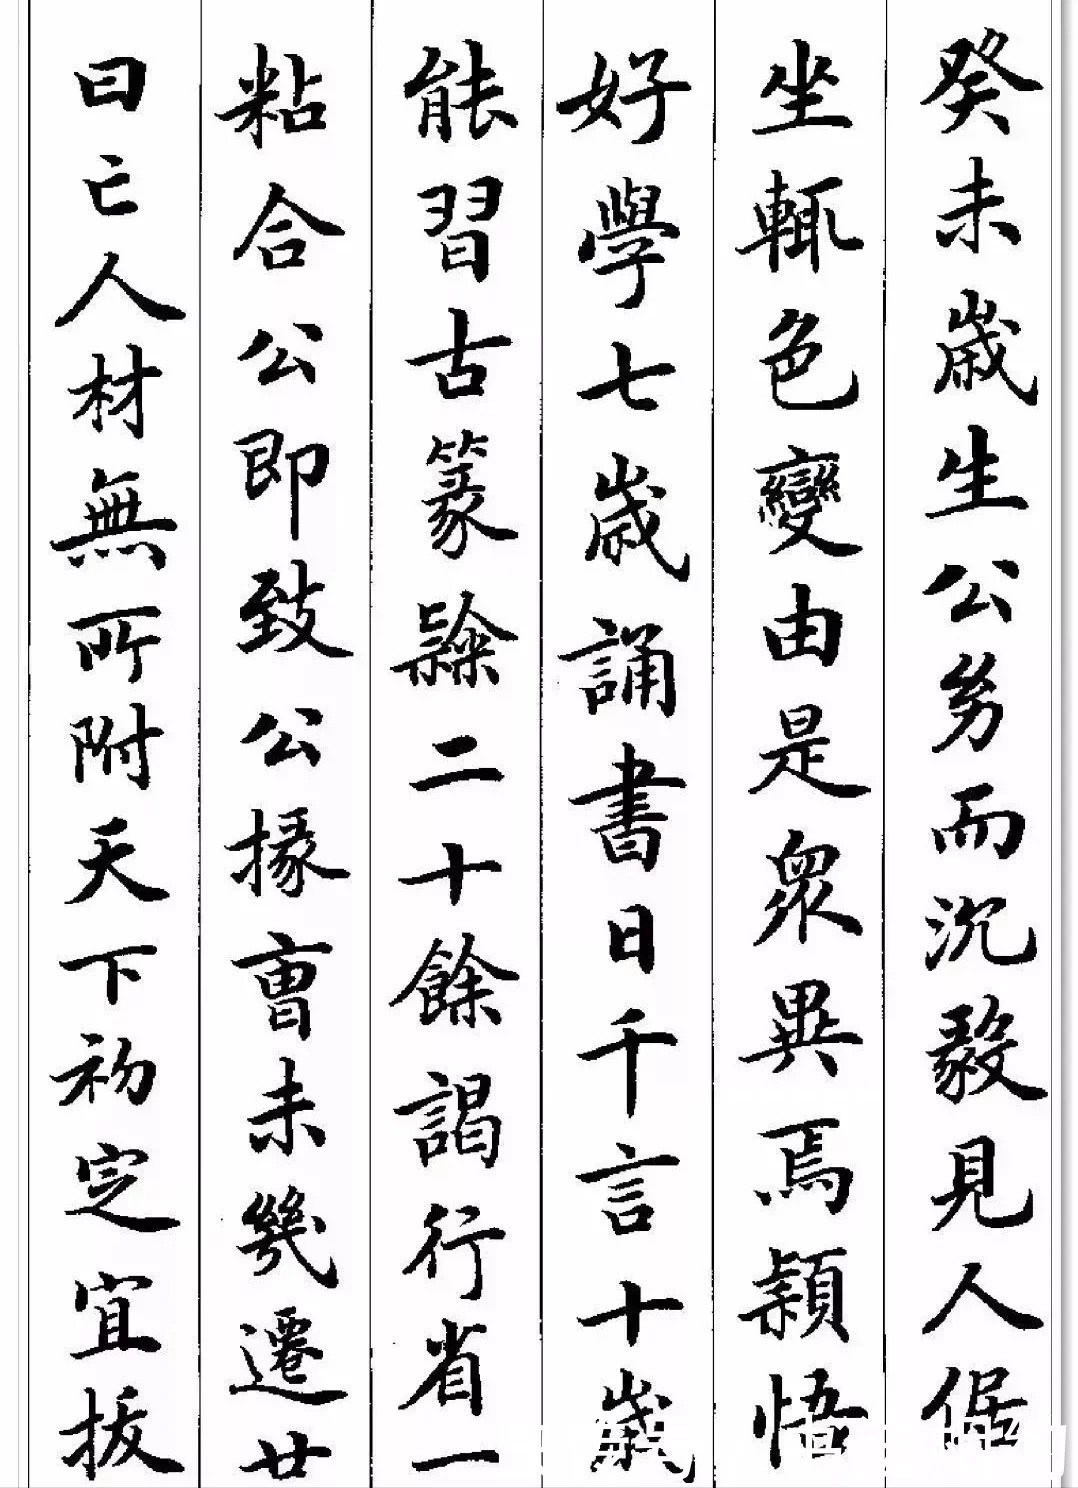 癸未歲生公㓜而沉毅見人倨
坐輒色變由是衆異焉穎悟
好學七歲誦書日千言十歲
能習古篆隸二十餘謁行省一
粘合公即致公掾曹未幾遷廿
曰亡人材無所附天下初定宜拔